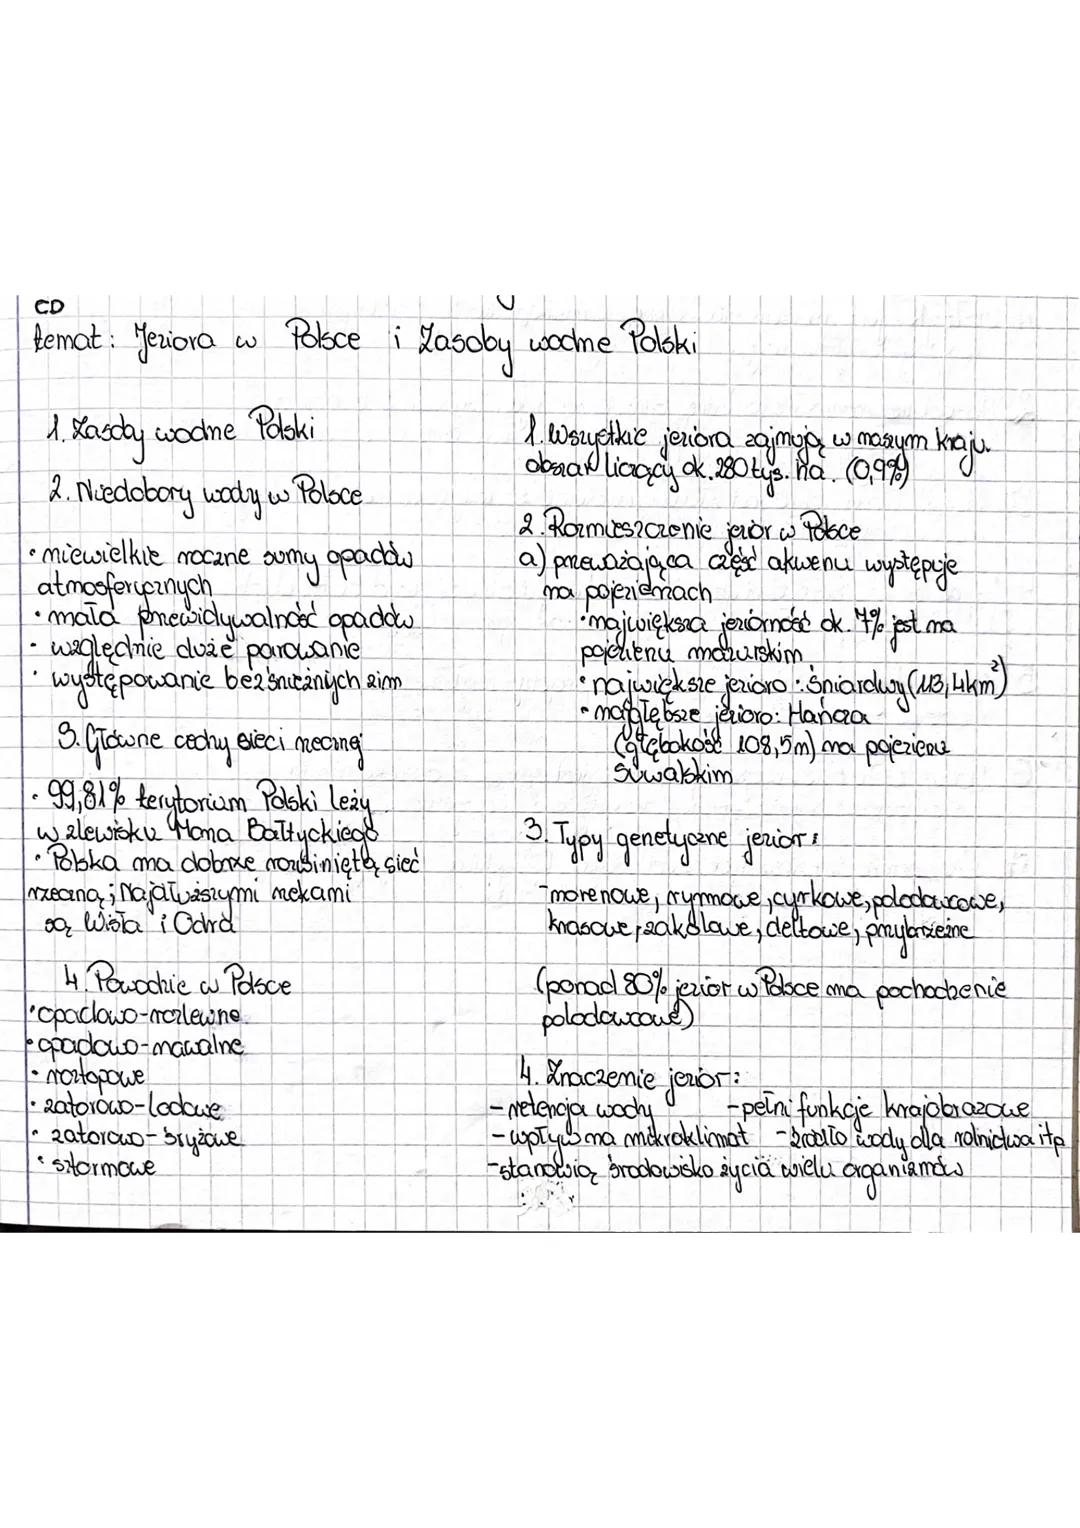 CD
temat: Jeziora w Polsce i Zasoby wodne Polski
1. Zasoby wodne Polski
2. Niedobory wody w Polsce
• niewielkie roczne sumy opadów
atmosferycznych
• mała przewidywalność opadów
• względnie duże parowanie
• występowanie bezśnieżnych zim
3. Główne cechy sieci rzecznej
• 99,81% terytorium Polski leży
w zlewisku Morza Bałtyckiego
• Polska ma dobrze rozwiniętą sieć
rzeczną; najdłuższymi rzekami
są Wisła i Odra
4. Powodzie w Polsce
• opadowo-rozlewne
• opadowo-nawalne
• roztopowe
• zatorowo-lodowe
• zatorowo-śryżowe
• sztormowe
1. Wszystkie jeziora zajmują w naszym kraju
obszar liczący ok. 280 tys. ha. (0,9%)
2. Rozmieszczenie jezior w Polsce
a) przeważająca część akwenu występuje
na pojezierzach
• największa jeziorność ok. 7% jest na
pojezierzu mazurskim
• największe jezioro: Śniardwy (113,4km²)
• najgłębsze jezioro: Hańcza
(głębokość 108,5m) na pojezierzu
suwalskim
3. Typy genetyczne jezior:
-morenowe, rynnowe, cyrkowe, polodowcowe,
krasowe, zakolowe, deltowe, przybrzeżne
(ponad 80% jezior w Polsce ma pochodzenie
polodowcowe)
4. Znaczenie jezior:
-retencja wody -pełni funkcje krajobrazowe
-wpływ na mikroklimat -źródło wody dla rolnictwa itp
-stanowią środowisko życia wielu organizmów